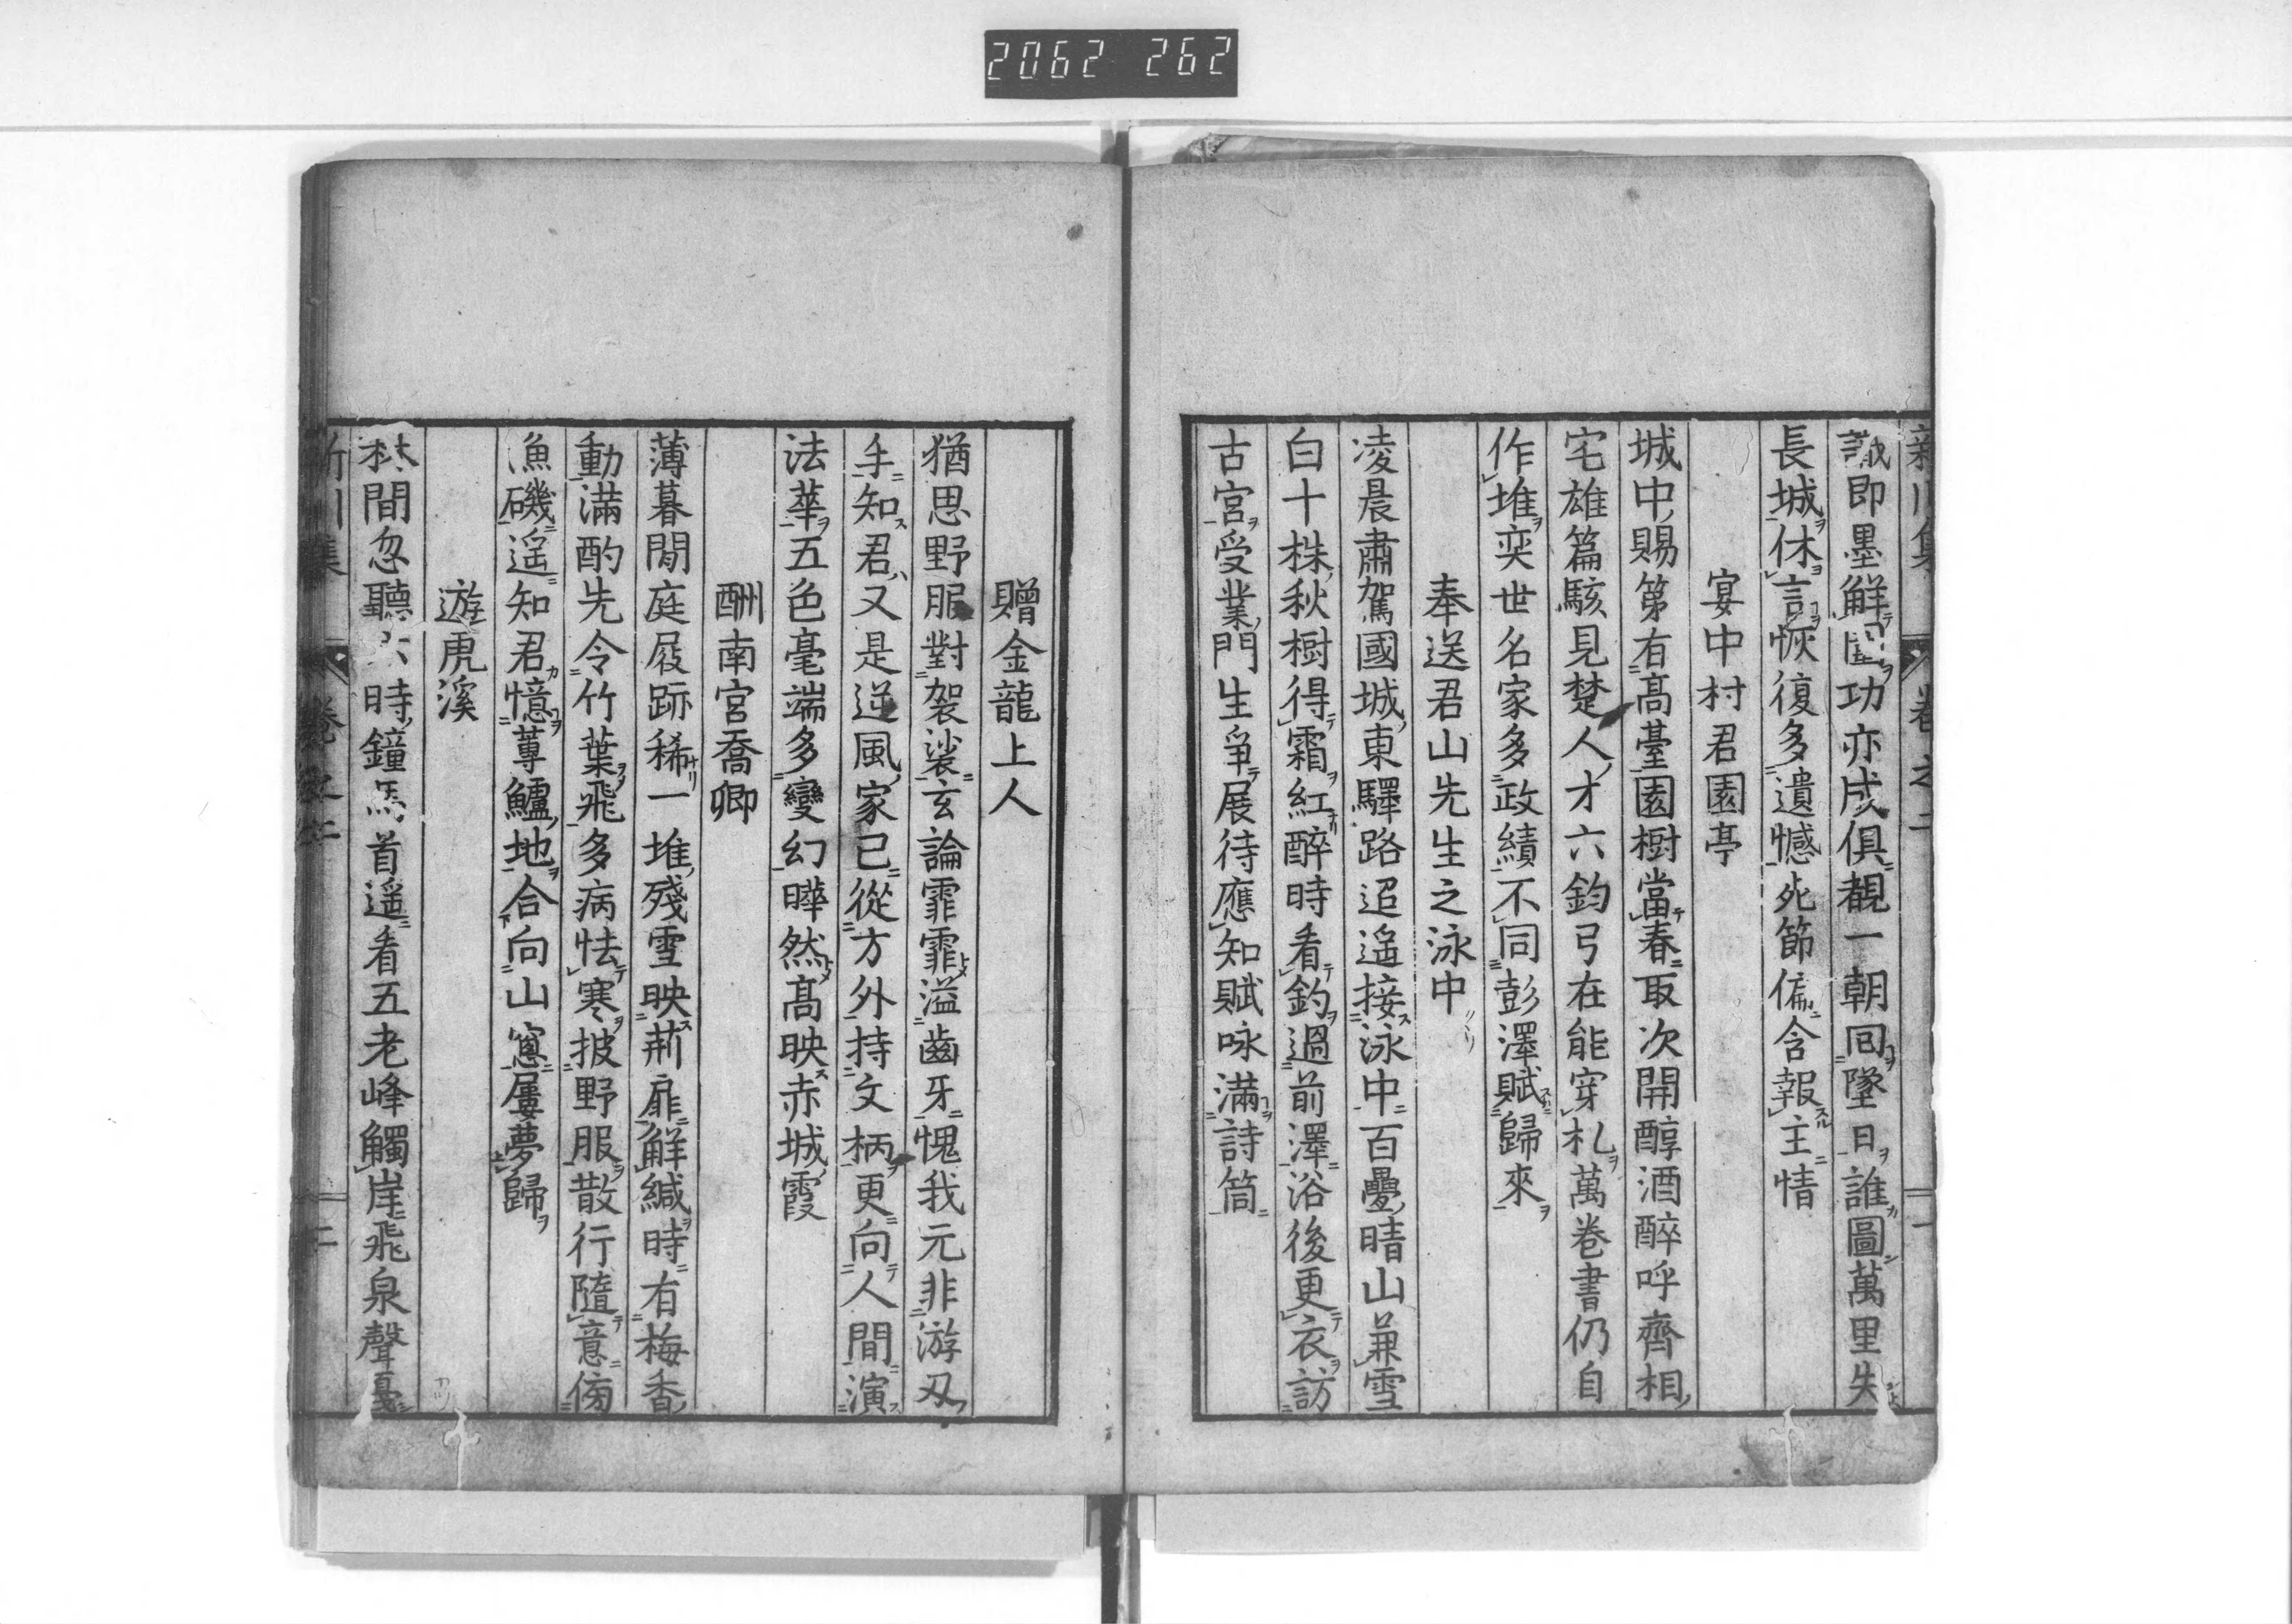 2062 262
新川集 卷之二 一
識即墨解圍功亦成俱覩一朝回墜日誰圖萬里失
長城休言恢復多遺憾死節偏含報主情
宴中村君園亭
城中賜第有高臺園樹當春取次開醇酒醉呼齊相
宅雄篇駭見楚人才六鈞弓在能穿札萬卷書仍自
作堆奕世名家多政績不同彭澤賦歸來
奉送君山先生之泳中
凌晨肅駕國城東驛路迢遥接泳中百疊晴山兼雪
白十株秋樹得霜紅醉時看釣過前澤浴後更衣訪
古宮受業門生爭展待應知賦咏滿詩筒
贈金龍上人
猶思野服對袈裟玄論霏霏溢齒牙愧我元非游刃
手知君又是逆風家已從方外持文柄更向人間演
法華五色毫端多變幻曄然高映赤城霞
酬南宮喬卿
薄暮閒庭屐跡稀一堆殘雪映荊扉鮮緘時有梅香
動滿酌先令竹葉飛多病怯寒披野服散行隨意傍
漁磯遥知君憶蓴鱸地合向山窻屢夢歸
遊虎溪
林間忽聽六時鐘馬首遥看五老峰觸崖飛泉聲戛
新川集 卷之二 二